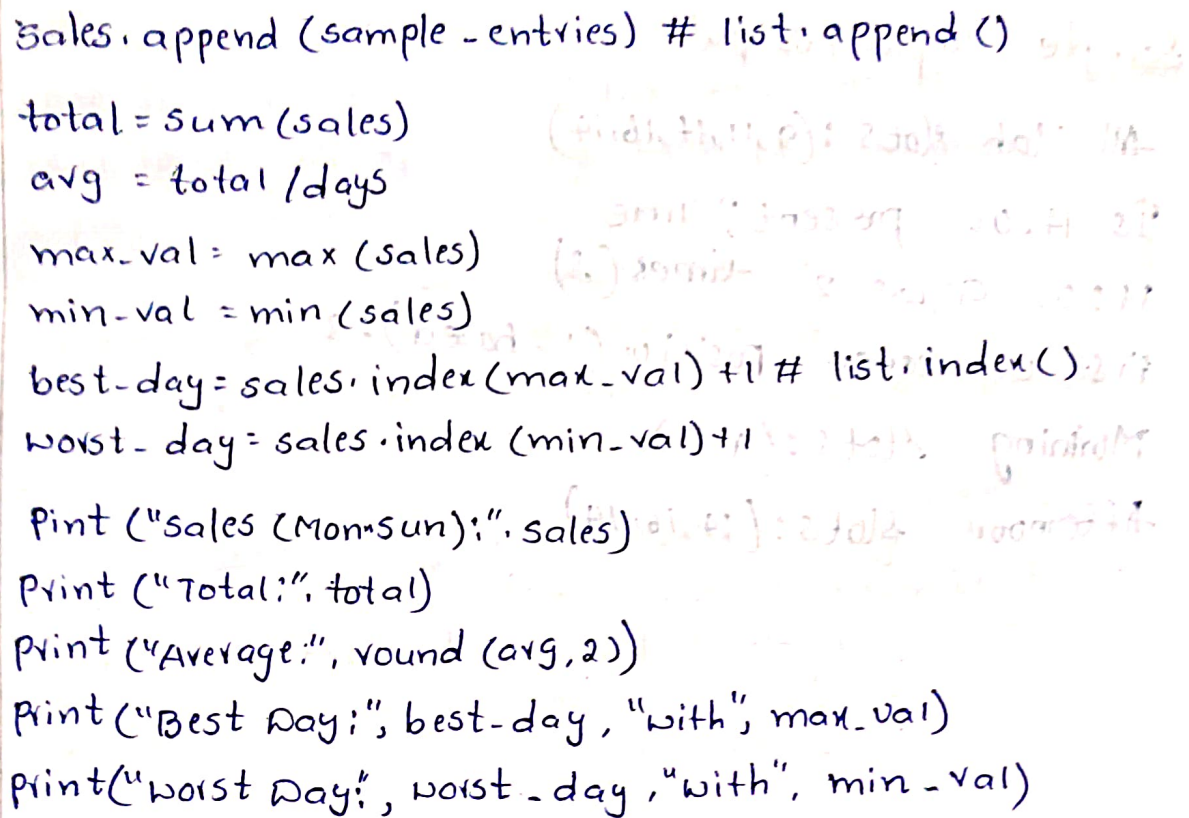 sales.append (sample-entries) # list.append ()
total = sum (sales)
avg = total /days
max-val = max (sales)
min-val = min (sales)
best-day = sales.index (max-val) +1 # list.index ()
worst-day = sales.index (min-val) +1
Pint ("sales (Mon-Sun):", sales)
Print ("Total:", total)
Print ("Average:", round (avg, 2))
Print ("Best Day:", best-day, "with", max-val)
print("worst Day:", worst-day, "with", min-val)